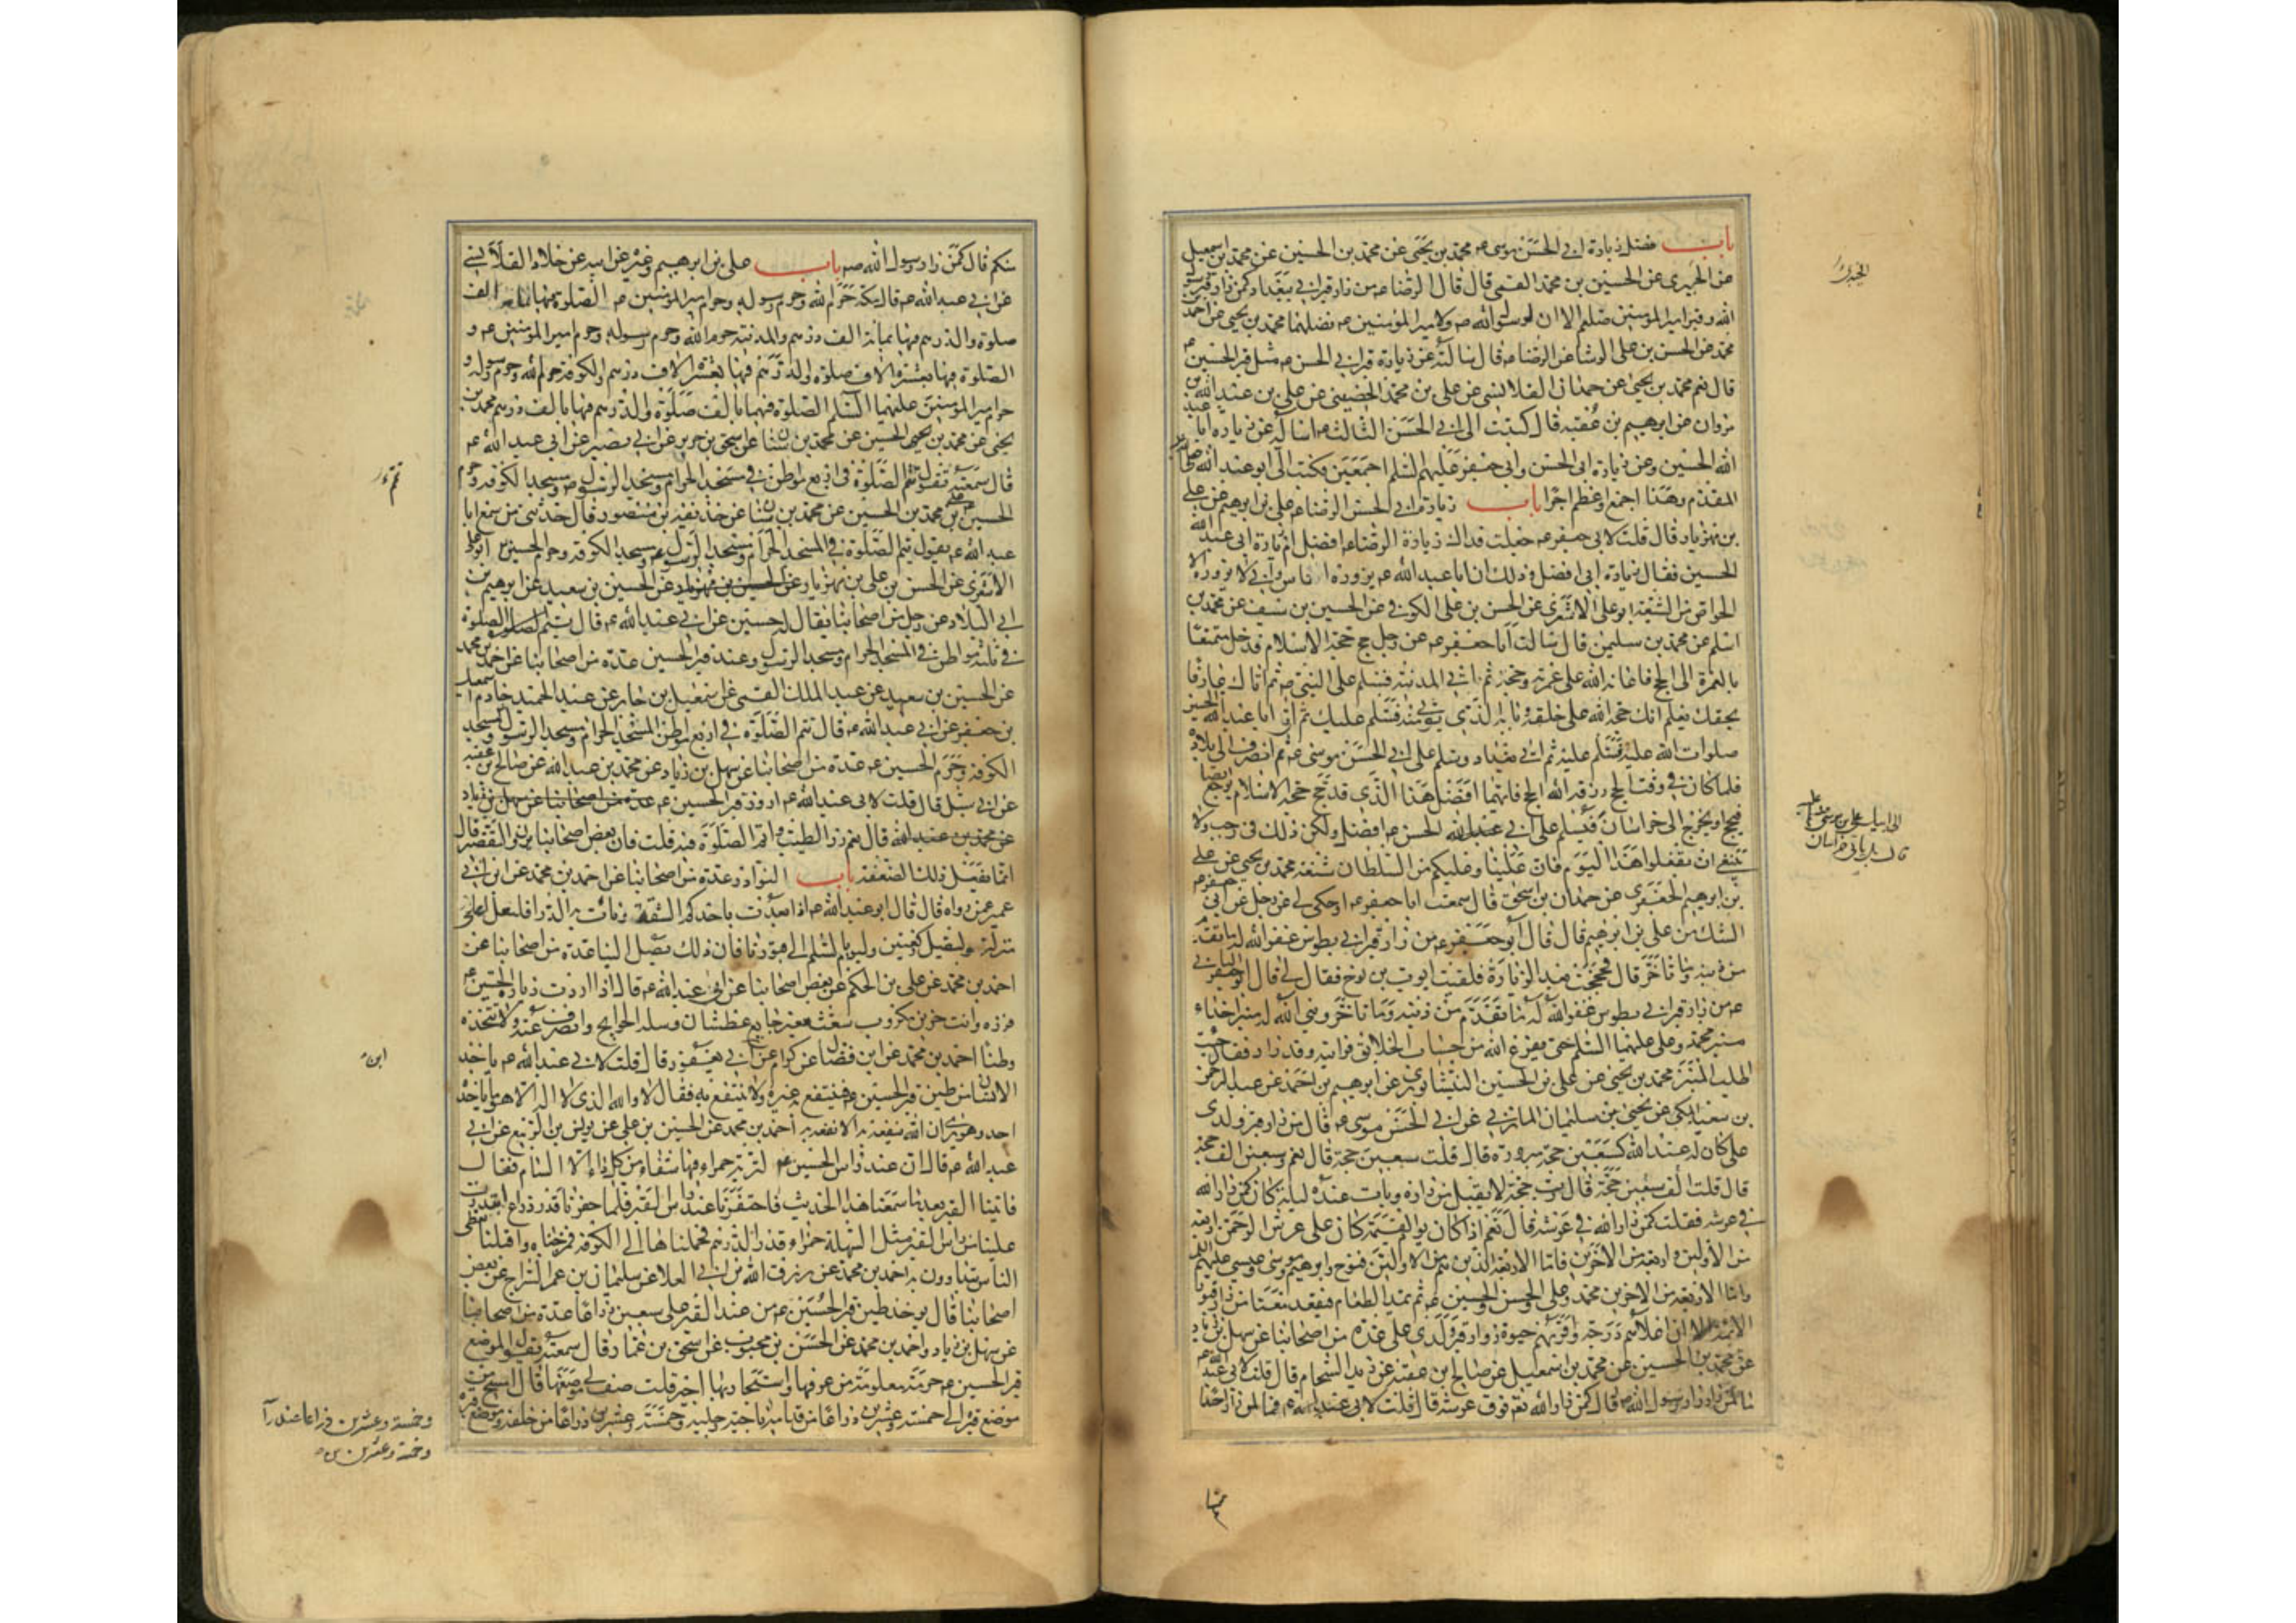 باب فضل زيارة ابي الحسن موسى ع محمد بن يحيى عن محمد بن الحسين عن محمد بن اسمعيل
عن الخيبرى عن الحسين بن محمد القمى قال قال الرضا ع من زار قبر ابي ببغداد كمن زار قبر رسول
الله وقبر امير المؤمنين صلهم الا ان لرسول الله ص ولامير المؤمنين ع فضلهما محمد بن يحيى عن احمد بن
محمد عن الحسن بن على الوشا عن الرضا ع قال سالته عن زيارة قبر ابي الحسن ع مثل قبر الحسين ع
قال نعم محمد بن يحيى عن حمدان القلانسى عن على بن محمد الحضينى عن على بن عبد الله بن
مروان عن ابرهيم بن عقبة قال كتبت الى ابي الحسن الثالث ع اساله عن زيارة ابا عبد
الله الحسين وعن زيارة ابى الحسن وابى جعفر عليهم السلم اجمعين فكتب الى ابو عبد الله
المقدم وهذا اجمع واعظم اجرا باب زيارة ابي الحسن الرضا ع على بن ابرهيم عن على
بن مهزيار قال قلت لابى جعفر ع جعلت فداك زيارة الرضا ع افضل ام زيارة ابى عبد الله
الحسين فقال زيارة ابى افضل وذلك ان ابا عبد الله ع يزوره الناس وابى لا يزوره الا
الخواص من الشيعة ابو على الاشعرى عن الحسن بن على الكوفى عن الحسين بن سيف عن محمد بن
اسلم عن محمد بن سليمن قال سالت ابا جعفر ع عن رجل حج حجة الاسلام فدخل متمتعا
بالعمرة الى الحج فاعانه الله على عمرته وحجه ثم اتى المدينة فسلم على النبى ص ثم اتاك عارفا
بحقك يعلم انك حجة الله على خلقه وبابه الذى يؤتى منه فسلم عليك ثم اتى ابا عبد الله الحسين
صلوات الله عليه فسلم عليه ثم اتى بغداد وسلم على ابي الحسن موسى ع ثم انصرف الى بلاده
فلما كان في وقت الحج رزقه الله الحج فايهما افضل هذا الذى قد حج حجة الاسلام يرجع ايضا
فيحج او يخرج الى خراسان فيسلم على ابي عبد الله الحسن ع افضل ولكن ذلك فى رجب ولا
ينبغى ان تفعلوا هذا اليوم فان علينا وعليكم من السلطان شنعة محمد بن يحيى عن على
بن ابرهيم الجعفرى عن حمدان بن اسحق قال سمعت ابا جعفر ع او حكى لى عن رجل عن ابي جعفر ع
الشك من على بن ابرهيم قال قال ابو جعفر ع من زار قبر ابي بطوس غفر الله له ما تقدم
من ذنبه وما تاخر قال فحججت بعد الزيارة فلقيت ايوب بن نوح فقال لى قال ابو جعفر الثانى
ع من زار قبر ابي بطوس غفر الله له ما تقدم من ذنبه وما تاخر وبنى الله له منبرا حذاء
منبر محمد وعلى عليهما السلم حتى يفرغ الله من حساب الخلائق فرايته وقد زار فقال جئت
اطلب المنبر محمد بن يحيى عن على بن الحسين النيشابورى عن ابرهيم بن احمد عن عبد الرحمن
بن سعيد المكى عن يحيى بن سليمان المازنى عن ابي الحسن موسى ع قال من زار قبر ولدى
على كان له عند الله كسبعين حجة مبرورة قال قلت سبعين حجة قال نعم وسبعين الف حجة
قال قلت الف سبعين حجة قال رب حجة لا يقبل من زاره وبات عنده ليلة كان كمن زار الله
فى عرشه فقلت كمن زار الله في عرشه قال نعم اذا كان يوم القيمة كان على عرش الرحمن اربعة
من الاولين واربعة من الاخرين فاما الاربعة الذين هم من الاولين فنوح وابرهيم وموسى وعيسى عليهم السلم
واما الاربعة من الاخرين محمد وعلى والحسن والحسين ع ثم يمد الطعام فيقعد معنا من زار قبور
الائمة الا ان اعلاهم درجة واقربهم حبوة زوار قبر ولدى على عدة من اصحابنا عن سهل بن زياد
عن محمد بن الحسين عن محمد بن اسمعيل عن صالح بن عقبة عن زيد الشحام قال قلت لابى عبد الله ع
ما لمن زار رسول الله ص قال كمن زار الله نعم فوق عرشه قال قلت لابى عبد الله ع فما لمن زار احدا
منكم قال كمن زار رسول الله ص باب على بن ابرهيم وغيره عن ابيه عن خلاد القلانسى
عن ابي عبد الله ع قال مكة حرم الله وحرم رسوله وحرم امير المؤمنين ع الصلوة فيها بمائة الف
صلوة والدرهم فيها بمائة الف درهم والمدينة حرم الله وحرم رسوله وحرم امير المؤمنين ع و
الصلوة فيها بعشرة الاف صلوة والدرهم فيها بعشرة الاف درهم والكوفة حرم الله وحرم رسوله و
حرم امير المؤمنين عليهما السلم الصلوة فيها بالف صلوة والدرهم فيها بالف درهم محمد بن
يحيى عن محمد بن يحيى الحسين عن محمد بن سنان عن اسحق بن حرير عن ابي بصير عن ابى عبد الله ع
قال سمعته يقول تتم الصلوة فى اربع مواطن فى مسجد الحرام ومسجد الرسول ص ومسجد الكوفة وحرم
الحسين ع محمد بن الحسين عن محمد بن سنان عن حذيفة بن منصور قال حدثنى من سمع ابا
عبد الله ع يقول تتم الصلوة في المسجد الحرام ومسجد الرسول ومسجد الكوفة وحرم الحسين ع ابو على
الاشعرى عن الحسن بن على بن مهزيار عن الحسين بن مهزيار عن الحسين بن سعيد عن ابرهيم بن
ابي البلاد عن رجل من اصحابنا يقال له حسين عن ابي عبد الله ع قال تتم الصلوة الصلوة
في ثلثة مواطن في المسجد الحرام ومسجد الرسول وعند قبر الحسين عدة من اصحابنا عن احمد بن محمد
عن الحسين بن سعيد عن عبد الملك القمى عن اسمعيل بن جابر عن عبد الحميد خادم اسمعيل
بن جعفر عن ابي عبد الله ع قال تتم الصلوة في اربع مواطن المسجد الحرام ومسجد الرسول ومسجد
الكوفة وحرم الحسين ع عدة من اصحابنا عن سهل بن زياد عن محمد بن عبد الله عن صالح بن عقبة
عن ابي شبل قال قلت لابى عبد الله ع ازور قبر الحسين ع عدة من اصحابنا عن سهل بن زياد
عن محمد بن عبد الله قال نعم زر الطيب واتم الصلوة فيه قلت فان بعض اصحابنا يرى التقصير قال
انما يفعل ذلك الضعفة باب النوادر عدة من اصحابنا عن احمد بن محمد عن ابن ابي
عمير عمن رواه قال قال ابو عبد الله ع اذا بعدت باحدكم الشقة ونات به الدار فليعل اعلى
منزله وليصل ركعتين وليوم بالسلم الى قبورنا فان ذلك يصل الينا عدة من اصحابنا عن
احمد بن محمد عن على بن الحكم عن بعض اصحابنا عن ابى عبد الله ع قال اذا اردت زيارة الحسين ع
فزره وانت حزين مكروب شعث مغبر جايع عطشان وسله الحوايج وانصرف عنه ولا تتخذه
وطنا احمد بن محمد عن ابن فضال عن كرام عن ابي يعفور قال قلت لابى عبد الله ع ياخذ
الانسان من طين قبر الحسين ع فينتفع به غيره ولا ينتفع به فقال لا والله الذى لا اله الا هو ما ياخذه
احد وهو يرى ان الله ينفعه به الا نفعه به احمد بن محمد عن الحسين بن على عن يونس بن الربيع عن ابي
عبد الله ع قال ان عند راس الحسين ع لتربة حمراء فيها شفاء من كل داء الا السام فقال
فاتينا القبر بعد ما سمعنا هذا الحديث فاحتفرنا عند راس القبر فلما حفرنا قدر ذراع ابتدرت
علينا من راس القبر مثل السهلة حمراء قدر الدرهم فحملناها الى الكوفة فمزجناه واقبلنا نعطى
الناس يتداوون به احمد بن محمد عن رزق الله بن ابي العلا عن سليمان بن عمر السراج عن بعض
اصحابنا قال يوخذ طين قبر الحسين ع من عند القبر على سبعين ذراعا عدة من اصحابنا
عن سهل بن زياد واحمد بن محمد عن الحسن بن محبوب عن اسحق بن عمار قال سمعته يقول لموضع
قبر الحسين ع حرمة معلومة من عرفها واستجار بها اجير قلت صف لى موضعها قال امسح من
موضع قبره الى خمسة وعشرين ذراعا من قدامه وناحية رجليه وخمسة وعشرين ذراعا من خلفه وموضع قبره
وخمسة وعشرين ذراعا عند را
وخمسة وعشرين من
ابن